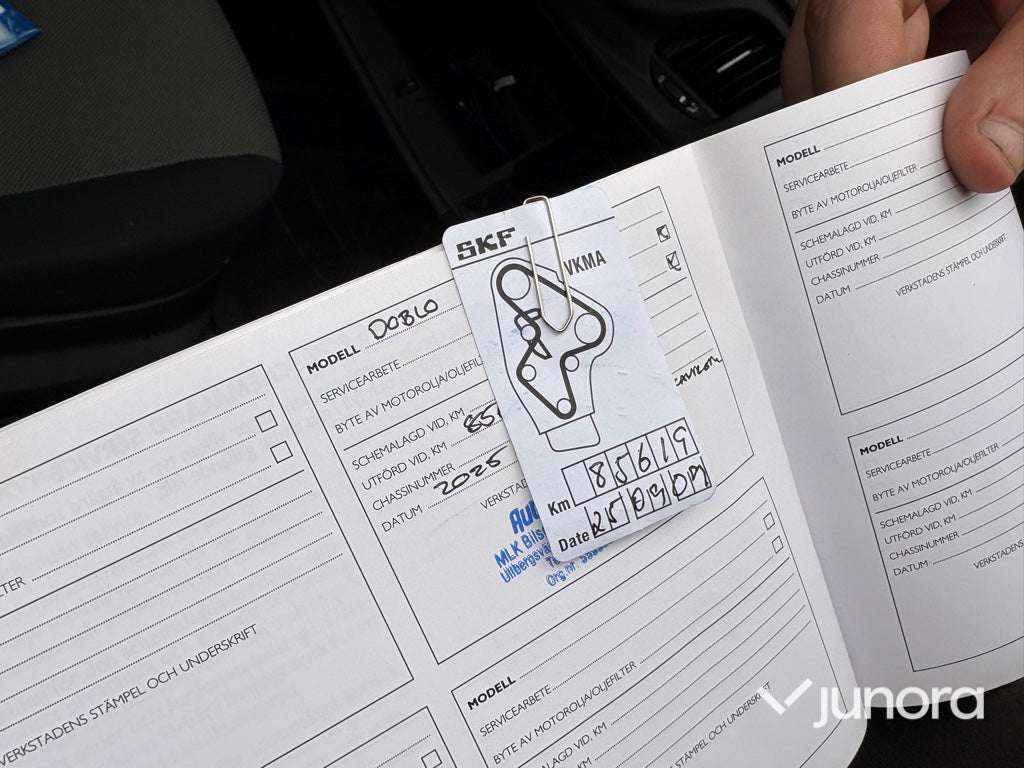 SKF
VKMA
Km 85619
Date 25 09 09
MODELL DOBLO
SERVICEARBETE
BYTE AV MOTOROLJA/OLJEFIL
SCHEMALAGD VID, KM
UTFÖRD VID, KM 85
CHASSINUMMER
DATUM 2025
VERKSTAD
MLK Bils
Lillbergsvä
Org.nr.
MODELL
SERVICEARBETE
BYTE AV MOTOROLJA/OLJEFILTER
ALAGD VID, KM
STÄMPEL OCH UNDERSKRIFT
TER
VERKSTADENS STÄMPEL OCH UNDERSKRIFT
MODELL
SERVICEARBETE
BYTE AV MOTOROLJA/OLJEFILTER
SCHEMALAGD VID, KM
UTFÖRD VID, KM
CHASSINUMMER
DATUM
VERKSTADENS STÄMPEL OCH UNDERSKRIFT
MODELL
SERVICEARBETE
BYTE AV MOTOROLJA/OLJEFILTER
SCHEMALAGD VID, KM
UTFÖRD VID, KM
CHASSINUMMER
DATUM
VERKSTADENS
junora